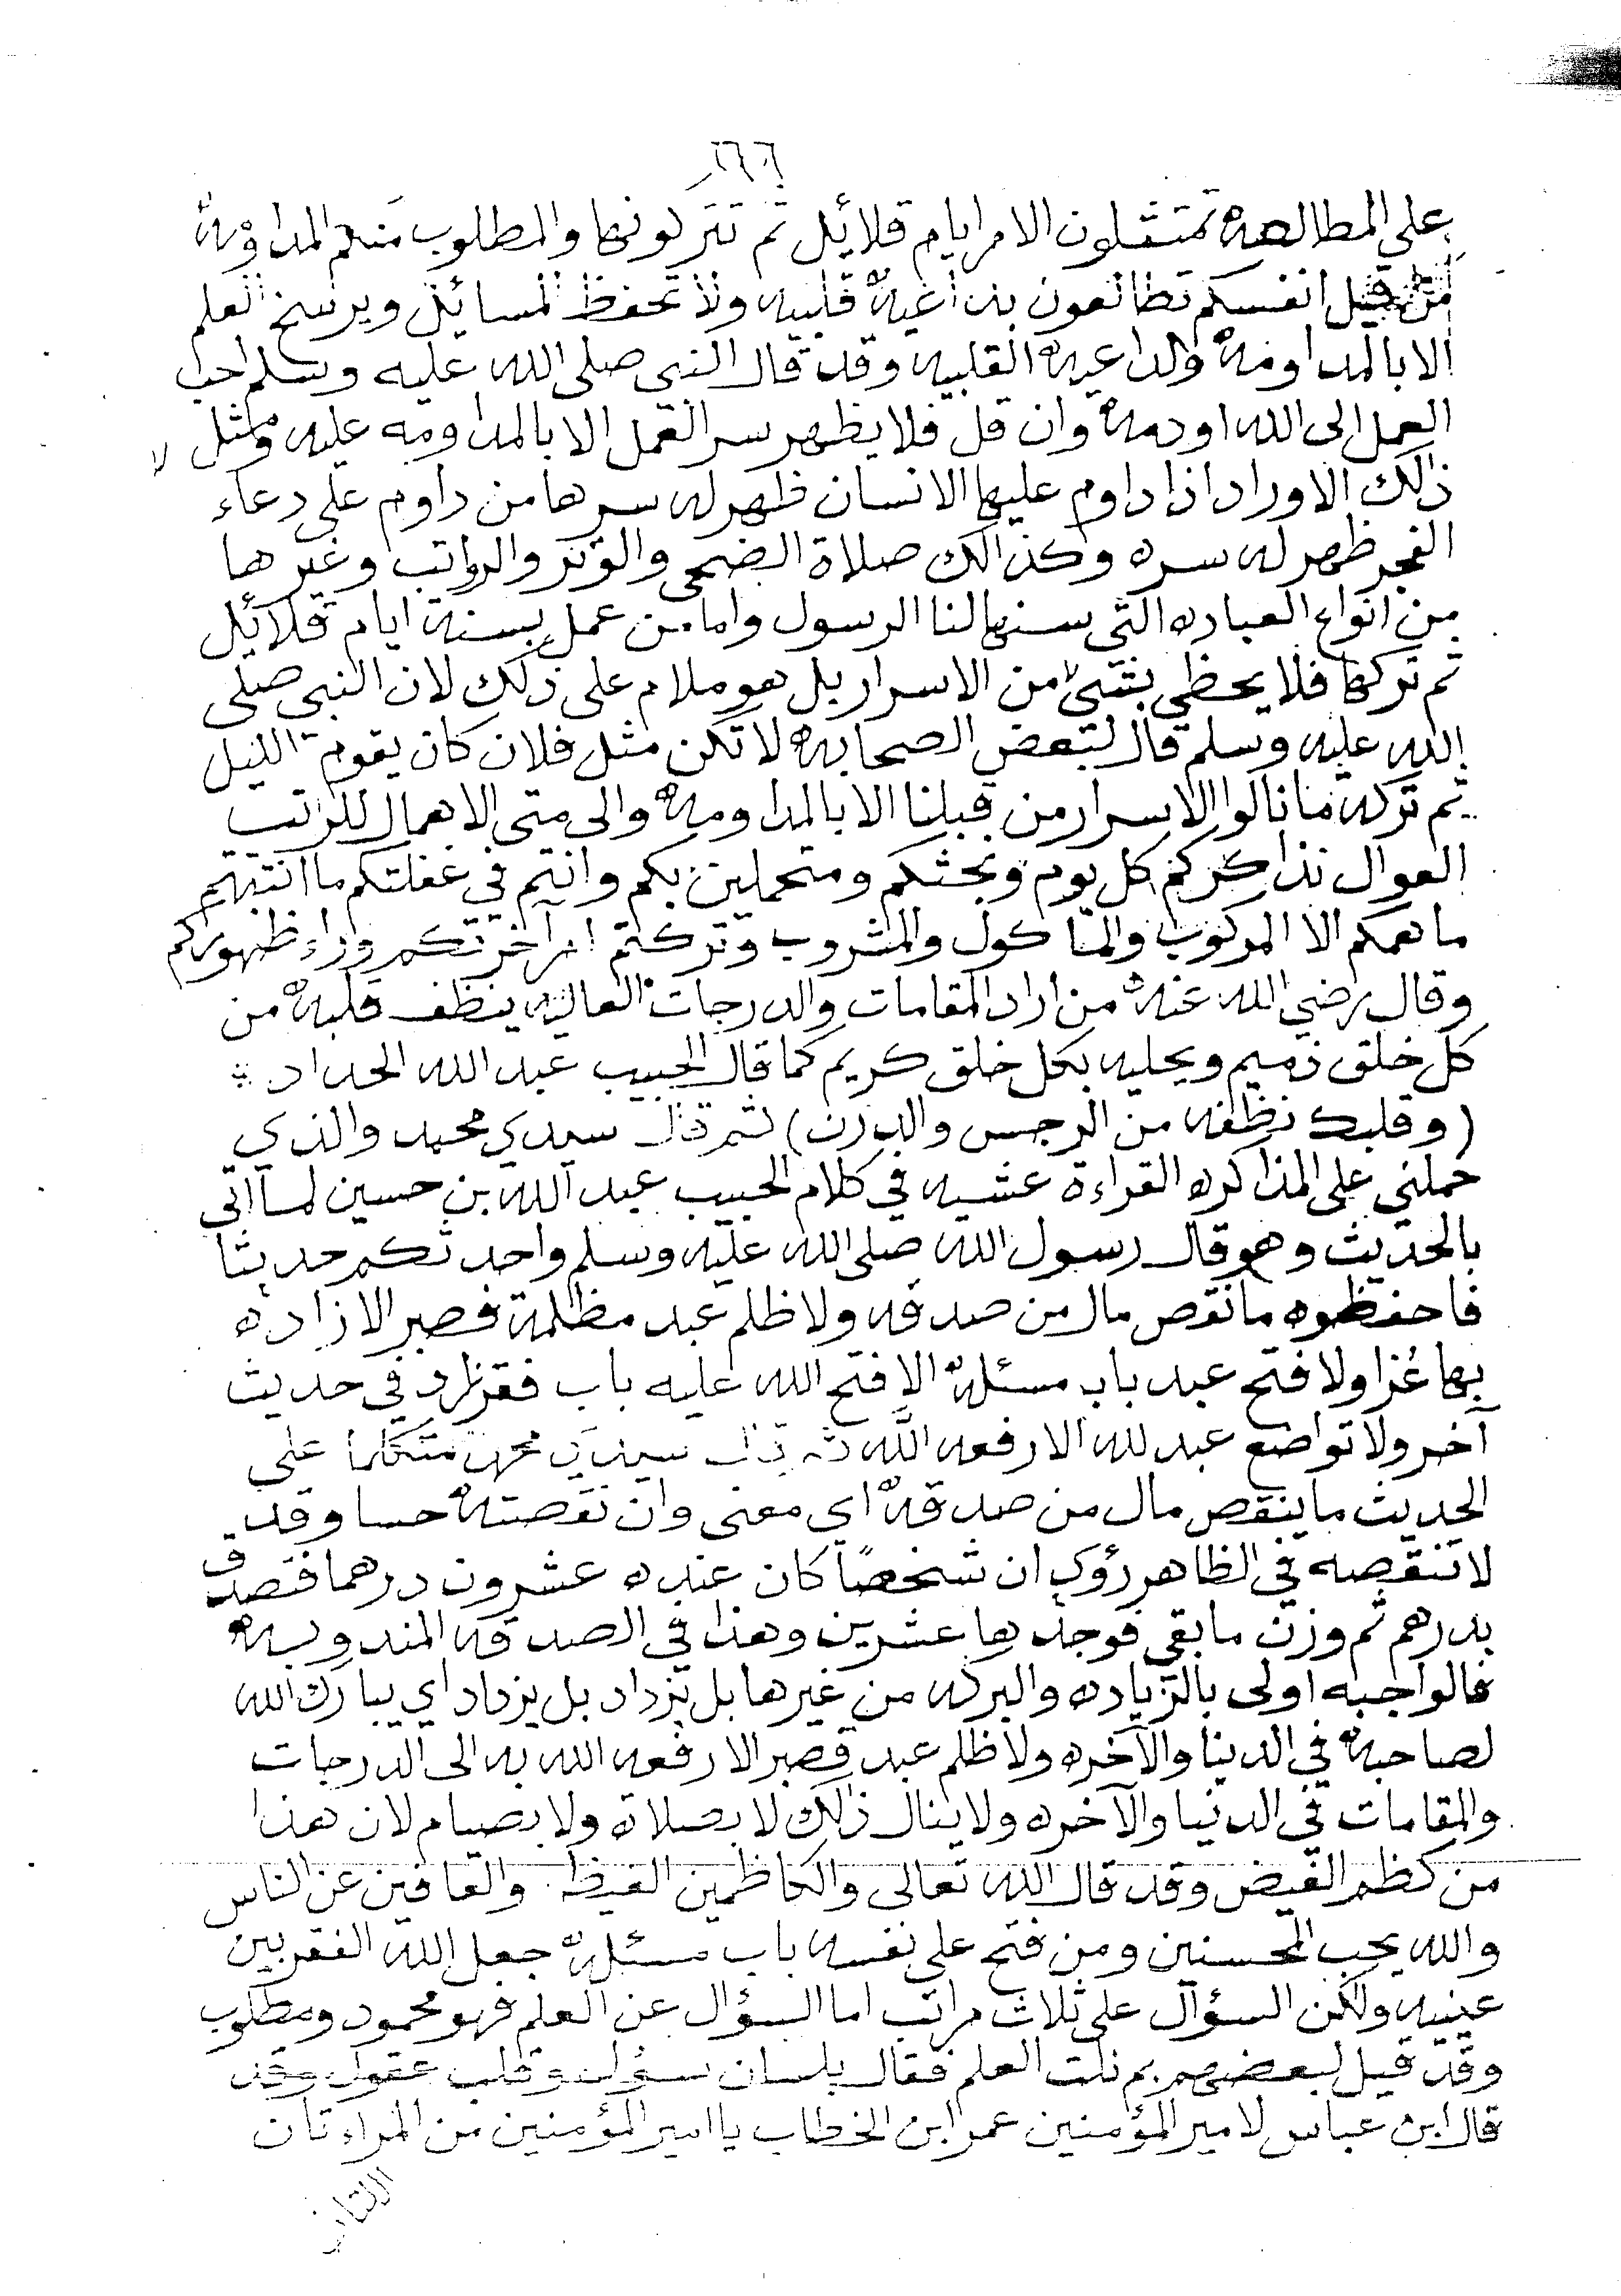 ٦٦٦
على المطالعه تمتثلون الامر ايام قلائل ثم تتركونها والمطلوب منكم المداومة
من قبيل انفسكم تطالعون بداعية قلبيه ولا تحفظ المسائل ويرسخ العلم
الا بالمداومة والداعية القلبيه وقد قال النبي صلى الله عليه وسلم احب
العمل الى الله اودمه وان قل فلا يظهر سر العمل الا بالمداومه عليه ومثل
ذالك الاوراد اذا داوم عليها الانسان ظهر له سرها من داوم على دعاء
الفجر ظهر له سره وكذالك صلاة الضحى والوتر والرواتب وغيرها
من انواع العباده التي سنها لنا الرسول واما من عمل بسنة ايام قلائل
ثم تركها فلا يحظى بشيء من الاسرار بل هو ملام على ذلك لان النبي صلى
الله عليه وسلم قال لبعض الصحابه لا تكن مثل فلان كان يقوم الليل
ثم تركه ما نالوا الاسرار من قبلنا الا بالمداومة والى متى الاهمال للراتب
العوال نذاكركم كل يوم ونحثكم ومتحملين بكم وانتم في غفلتكم ما انتبهتم
ما همكم الا المركوب والمأكول والمشروب وتركتم امر آخرتكم وراء ظهوركم
وقال رضي الله عنه من اراد المقامات والدرجات العاليه ينظف قلبه من
كل خلق ذميم ويحليه بكل خلق كريم كما قال الحبيب عبد الله الحداد
(وقلبك نظفه من الرجس والدرن) ثم قال سيدي محمد والذي
حملني على المذاكره القراءة عشيه في كلام الحبيب عبد الله بن حسين لما اتى
بالحديث وهو قال رسول الله صلى الله عليه وسلم واحدثكم حديثا
فاحفظوه ما نقص مال من صدقه ولا ظلم عبد مظلمة فصبر الا زاده
بها عزا ولا فتح عبد باب مسئلة الا فتح الله عليه باب فقر زاد في حديث
آخر ولا تواضع عبد لله الا رفعه الله ثم قال سيدي محمد متكلما على
الحديث ما ينقص مال من صدقة اي معنى وان نقصته حسا وقد
لا تنقصه في الظاهر رؤي ان شخصًا كان عنده عشرون درهما فتصدق
بدرهم ثم وزن ما بقي فوجدها عشرين وهذا في الصدقه المندوبه
فالواجبه اولى بالزياده والبركه من غيرها بل يزداد بل يزداد اي يبارك الله
لصاحبه في الدنيا والآخره ولا ظلم عبد فصبر الا رفعه الله به الى الدرجات
والمقامات في الدنيا والآخره ولا ينال ذالك لا بصلاة ولا بصيام لان هذا
من كظم الغيض وقد قال الله تعالى والكاظمين الغيظ والعافين عن الناس
والله يحب المحسنين ومن فتح على نفسه باب مسئلة جعل الله الفقر بين
عينيه ولكن السؤال على ثلاث مراتب اما السؤال عن العلم فهو محمود ومطلوب
وقد قيل لبعضهم بم نلت العلم فقال بلسان سؤل وقلب عقول وقد
قال ابن عباس لامير المؤمنين عمر ابن الخطاب يا امير المؤمنين من المرءتان
اللتان